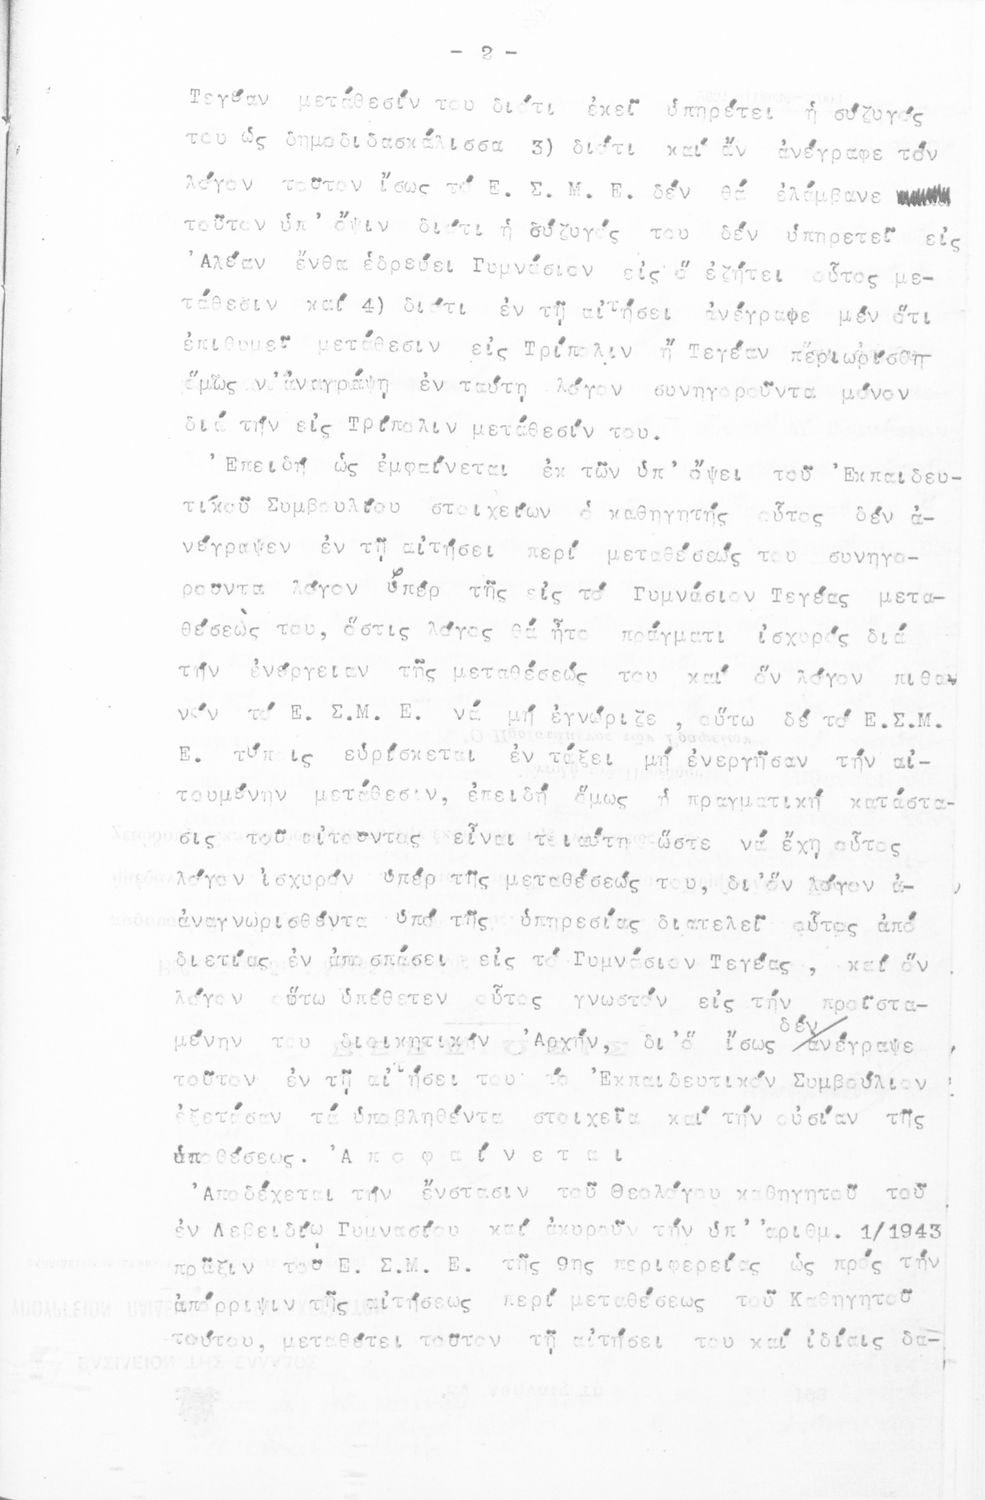 - 2 -
Τεγέαν μετάθεσίν του διότι ἐκεῖ ὑπηρέτει ἡ σύζυγός
του ὡς δημοδιδασκάλισσα 3) διότι καί ἄν ἀνέγραφε τόν
λόγον τοῦτον ἴσως τό Ε. Σ. Μ. Ε. δέν θά ἐλάμβανε
τοῦτον ὑπ' ὄψιν διότι ἡ σύζυγός του δέν ὑπηρετεῖ εἰς
'Αλέαν ἔνθα ἑδρεύει Γυμνάσιον εἰς ὅ ἐζήτει οὗτος με-
τάθεσιν καί 4) διότι ἐν τῇ αἰτήσει ἀνέγραφε μέν ὅτι
ἐπιθυμεῖ μετάθεσιν εἰς Τρίπολιν ἤ Τεγέαν περιωρίσθη
ὅμως ν'ἀναγράψῃ ἐν ταύτῃ λόγον συνηγοροῦντα μόνον
διά τήν εἰς Τρίπολιν μετάθεσίν του.
'Επειδή ὡς ἐμφαίνεται ἐκ τῶν ὑπ' ὄψει τοῦ 'Εκπαιδευ-
τικοῦ Συμβουλίου στοιχείων ὁ καθηγητής οὗτος δέν ἀ-
νέγραψεν ἐν τῇ αἰτήσει περί μεταθέσεώς του συνηγο-
ροῦντα λόγον ὑπέρ τῆς εἰς τό Γυμνάσιον Τεγέας μετα-
θέσεώς του, ὅστις λόγος θά ἦτο πράγματι ἰσχυρός διά
τήν ἐνέργειαν τῆς μεταθέσεώς του καί ὅν λόγον πιθα
νόν τό Ε. Σ.Μ. Ε. νά μή ἐγνώριζε , οὕτω δέ τό Ε.Σ.Μ.
Ε. τύποις εὑρίσκεται ἐν τάξει μή ἐνεργῆσαν τήν αἰ-
τουμένην μετάθεσιν, ἐπειδή ὅμως ἡ πραγματική κατάστα-
σις τοῦ αἰτοῦντος εἶναι τοιαύτη ὥστε νά ἔχῃ οὗτος
λόγον ἰσχυρόν ὑπέρ τῆς μεταθέσεώς του, δι'ὅν λόγον ἀ-
ἀναγνωρισθέντα ὑπό τῆς ὑπηρεσίας διατελεῖ οὗτος ἀπό
διετίας ἐν ἀποσπάσει εἰς τό Γυμνάσιον Τεγέας , καί ὅν
λόγον οὕτω ὑπέθετεν οὗτος γνωστόν εἰς τήν προϊστα-
μένην του διοικητικήν 'Αρχήν, δι'ὅ ἴσως δέν ἀνέγραψε
τοῦτον ἐν τῇ αἰτήσει του τό 'Εκπαιδευτικόν Συμβούλιον
ἐξετάσαν τά ὑποβληθέντα στοιχεῖα καί τήν οὐσίαν τῆς
ὑποθέσεως. 'Α π ο φ α ί ν ε τ α ι
'Αποδέχεται τήν ἔνστασιν τοῦ Θεολόγου καθηγητοῦ τοῦ
ἐν Λεβειδίῳ Γυμνασίου καί ἀκυροῦν τήν ὑπ' 'αριθμ. 1/1943
πρᾶξιν τοῦ Ε. Σ.Μ. Ε. τῆς 9ης περιφερείας ὡς πρός τήν
ἀπόρριψιν τῆς αἰτήσεως περί μεταθέσεως τοῦ Καθηγητοῦ
τούτου, μεταθέτει τοῦτον τῇ αἰτήσει του καί ἰδίαις δα-